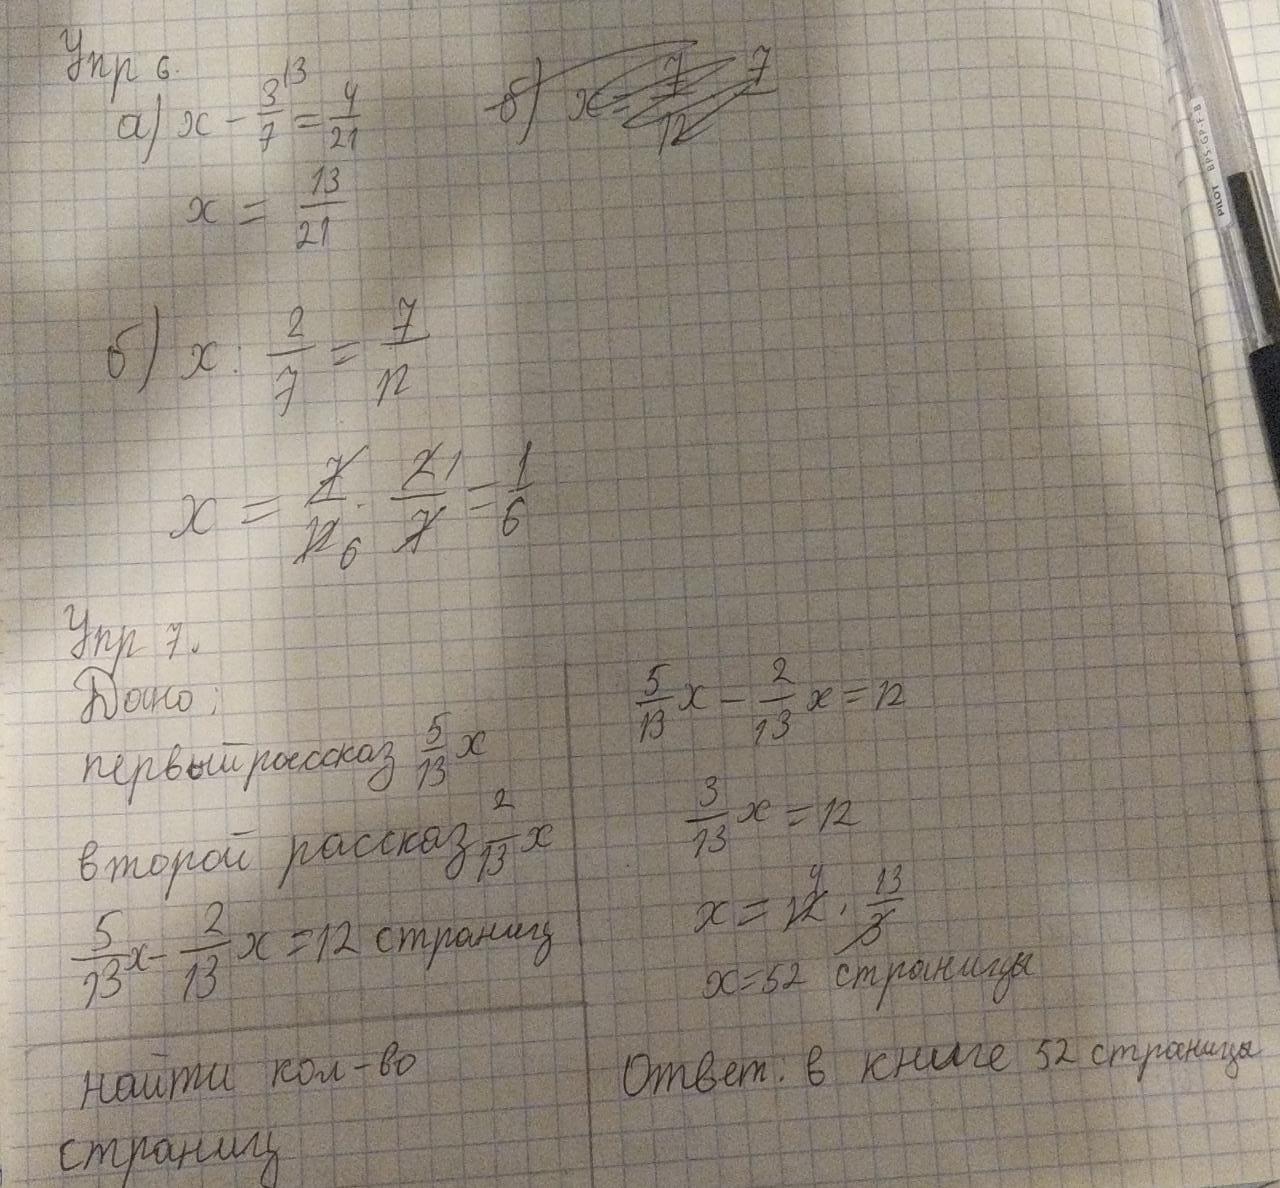 Упр 6.
а) x - 3/7 |3 = 4/21
x = 13/21
б) x : 2/7 = 7/12
x = 7/12 6 · 2 1/7 = 1/6
Упр 7.
Дано:
первый рассказ 5/13 x
второй рассказ 2/13 x
5/13 x - 2/13 x = 12 страниц
найти кол-во
страниц
5/13 x - 2/13 x = 12
3/13 x = 12
x = 12 4 · 13/3
x = 52 страницы
Ответ: в книге 52 страницы
PILOT BPS-GP-F-B